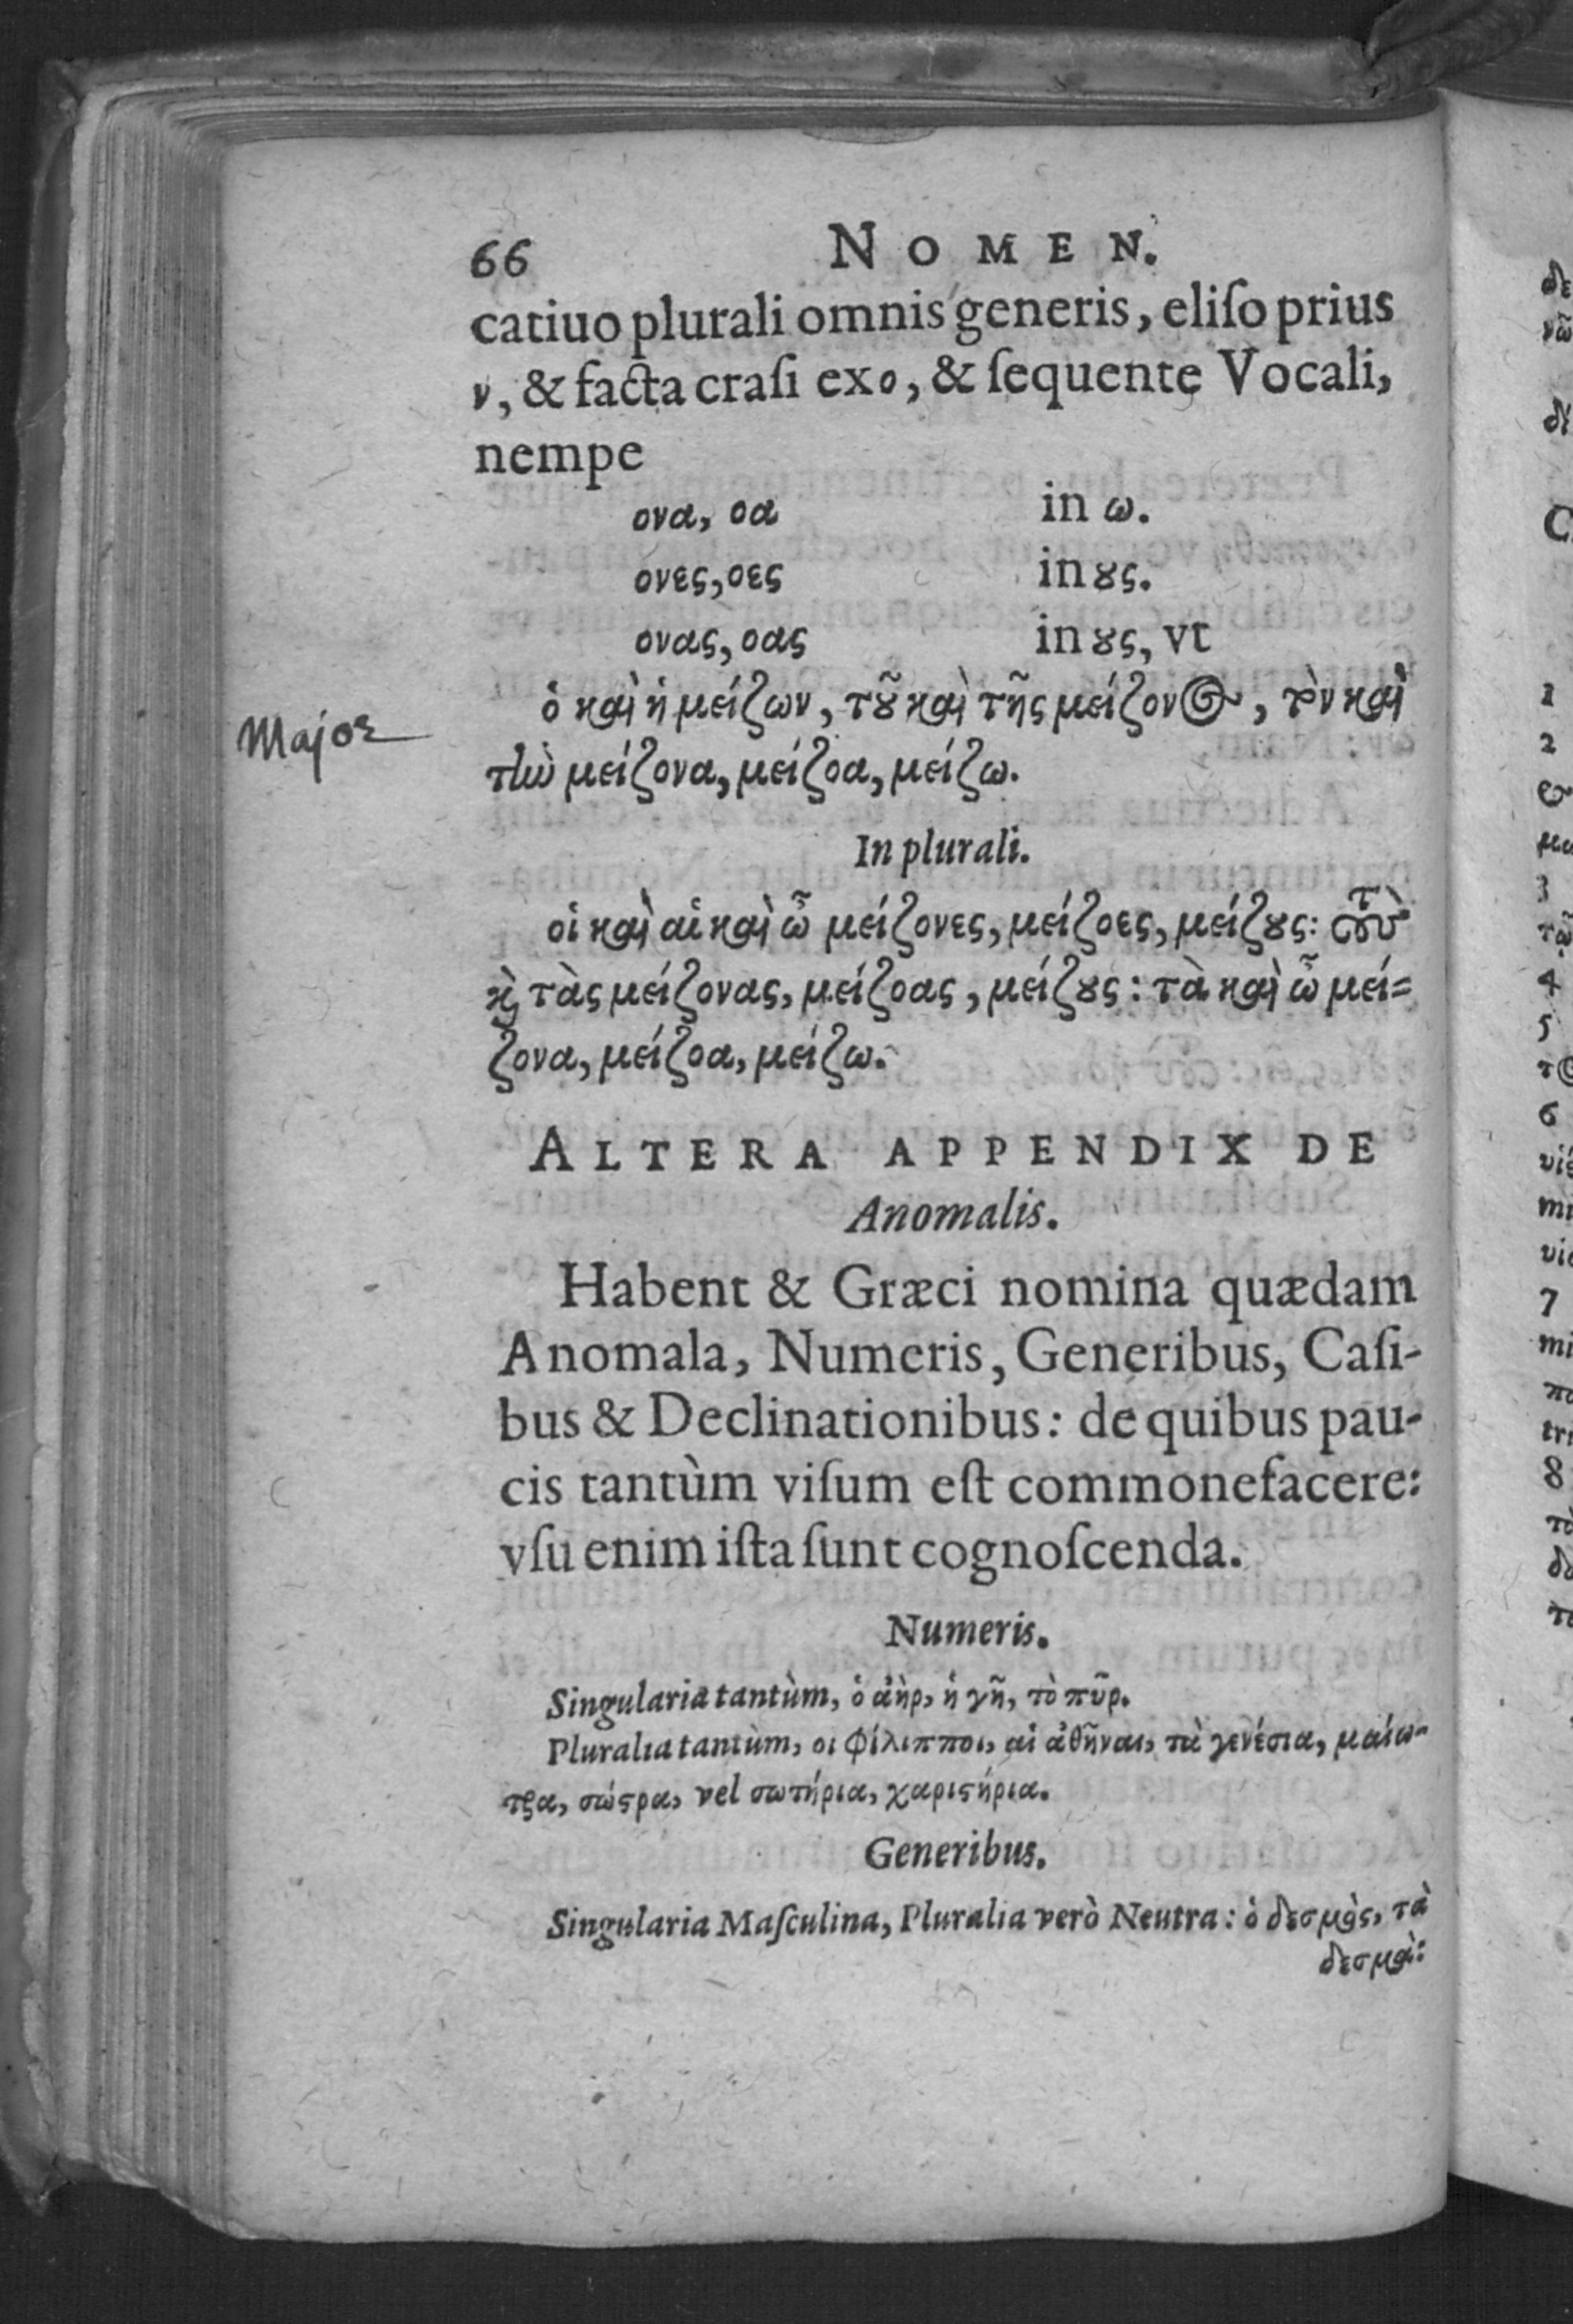 66 NOMEN.
catiuo plurali omnis generis, eliſo prius
ν, & facta craſi ex ο, & ſequente Vocali,
nempe
ονα, οα in ω.
ονες, οες in ȣς.
ονας, οας in ȣς, vt
ὁ καὶ ἡ μείζων, τȣ͂ καὶ τῆς μείζονος, τὸν καὶ
Major
τὴν μείζονα, μείζοα, μείζω.
In plurali.
οἱ καὶ αἱ καὶ ὦ μείζονες, μείζοες, μείζȣς: τοὺς
ϗ τὰς μείζονας, μείζοας, μείζȣς: τὰ καὶ ὦ μεί=
ζονα, μείζοα, μείζω.
ALTERA APPENDIX DE
Anomalis.
Habent & Græci nomina quædam
Anomala, Numeris, Generibus, Caſi-
bus & Declinationibus: de quibus pau-
cis tantùm viſum eſt commonefacere:
vſu enim iſta ſunt cognoſcenda.
Numeris.
Singularia tantùm, ὁ ἀὴρ, ἡ γῆ, τὸ πῦρ.
Pluralia tantùm, οι φίλιπποι, αἱ ἀθῆναι, τὰ γενέσια, μαίω-
τρα, σώϛρα, vel σωτήρια, χαριϛήρια.
Generibus.
Singularia Maſculina, Pluralia verò Neutra: ὁ δεσμὸς, τὰ
δεσμὰ: